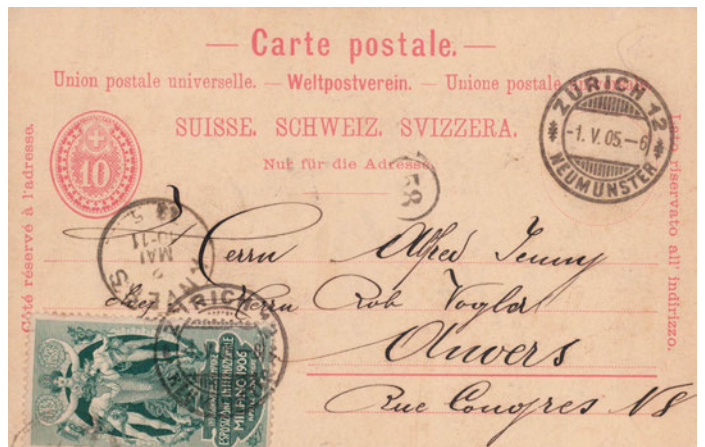 — Carte postale. —
Union postale universelle. — Weltpostverein. — Unione postale
SUISSE. SCHWEIZ. SVIZZERA.
Nur für die Adresse
Côté réservé à l'adresse.
Lato riservato all' indirizzo.
10
ZÜRICH 12
-1. V. 05. — 6
NEUMÜNSTER
58
Herrn Alfred Jenny
Herrn Rob Vogler
Anvers
Rue Congres N8
10-11
MAI
ZÜRICH
ESPOSIZIONE INTERNAZIONALE
MILANO 1906